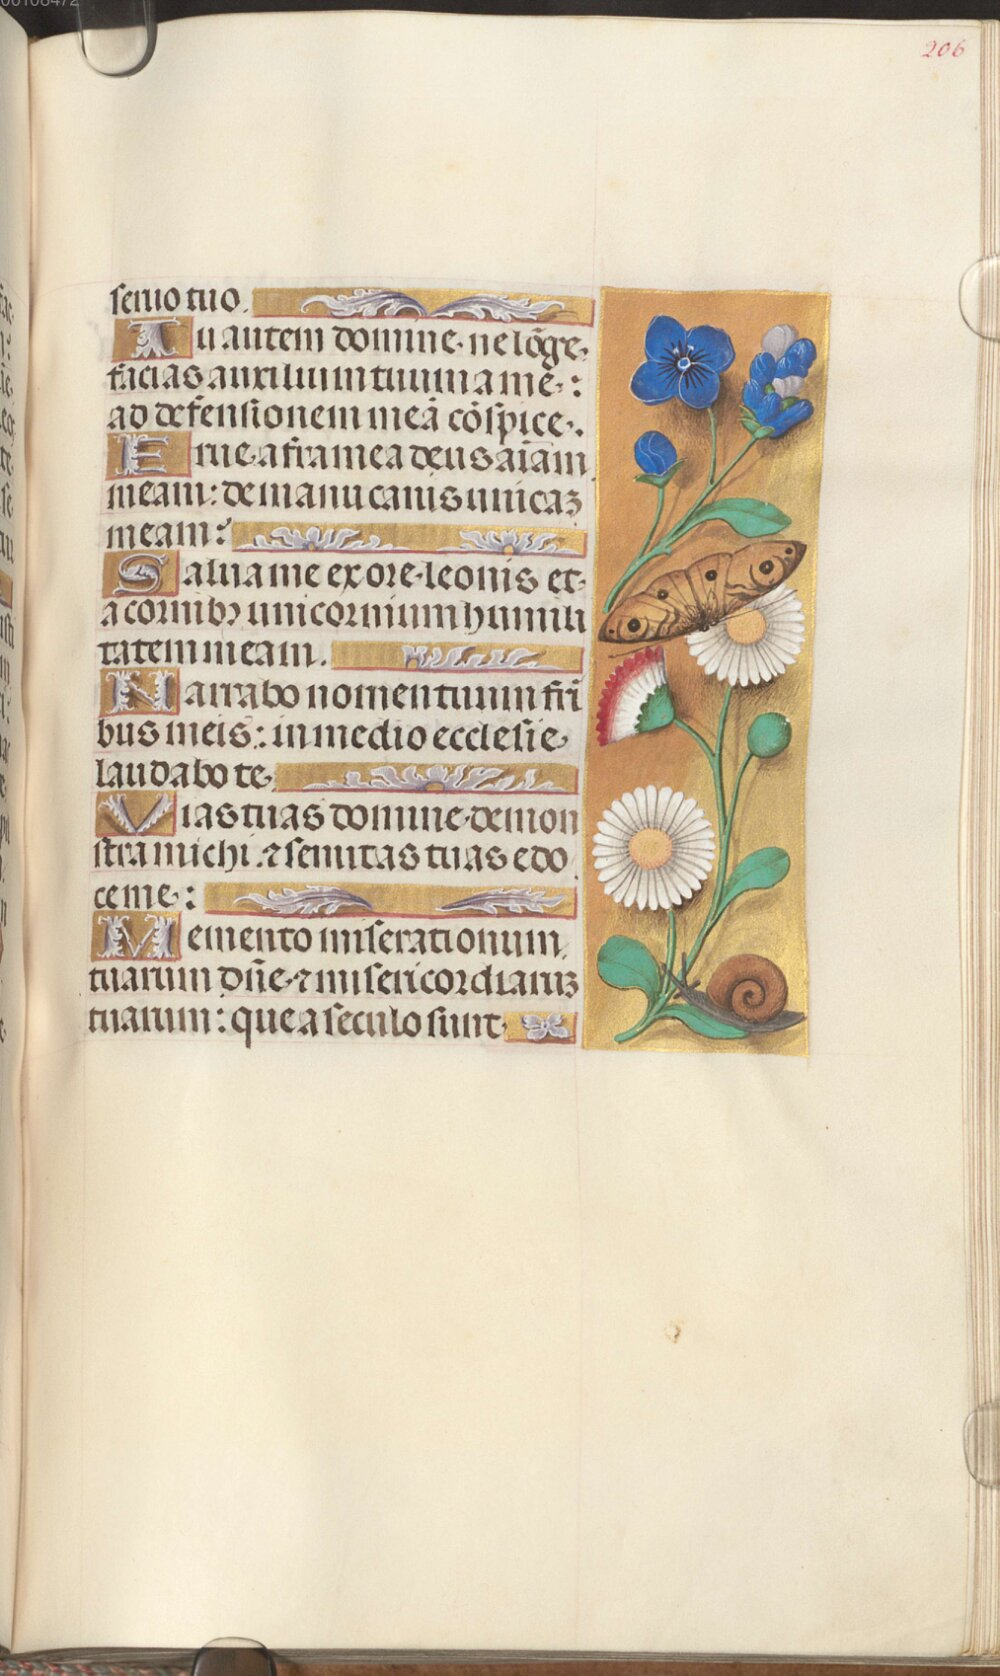 206
seruo tuo.
Tu autem domine. ne lo͂ge
facias auxilium tuum a me:
ad defensionem meā cōspice.
Erue a framea deus aīam
meam: de manu canis unicaꝫ
meam:
Salua me ex ore leonis et
a cornibꝫ unicornium humili
tatem meam.
Narrabo nomen tuum fr̄i
bus meis: in medio ecclesie
laudabo te.
Vias tuas domine demon
stra michi. ⁊ semitas tuas edo
ce me:
Memento miserationum
tuarum dn̄e. ⁊ misericordiarūꝫ
tuarum: que a seculo sunt.